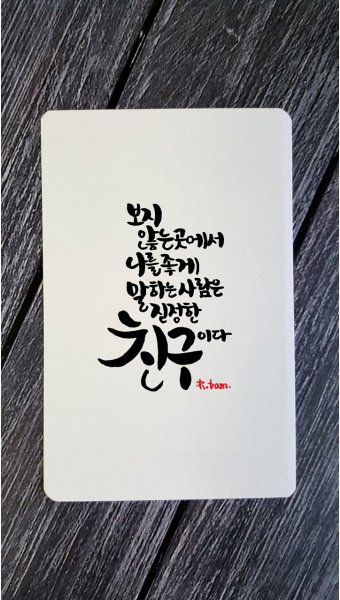 보지
않는곳에서
나를좋게
말하는사람은
진정한
친구이다